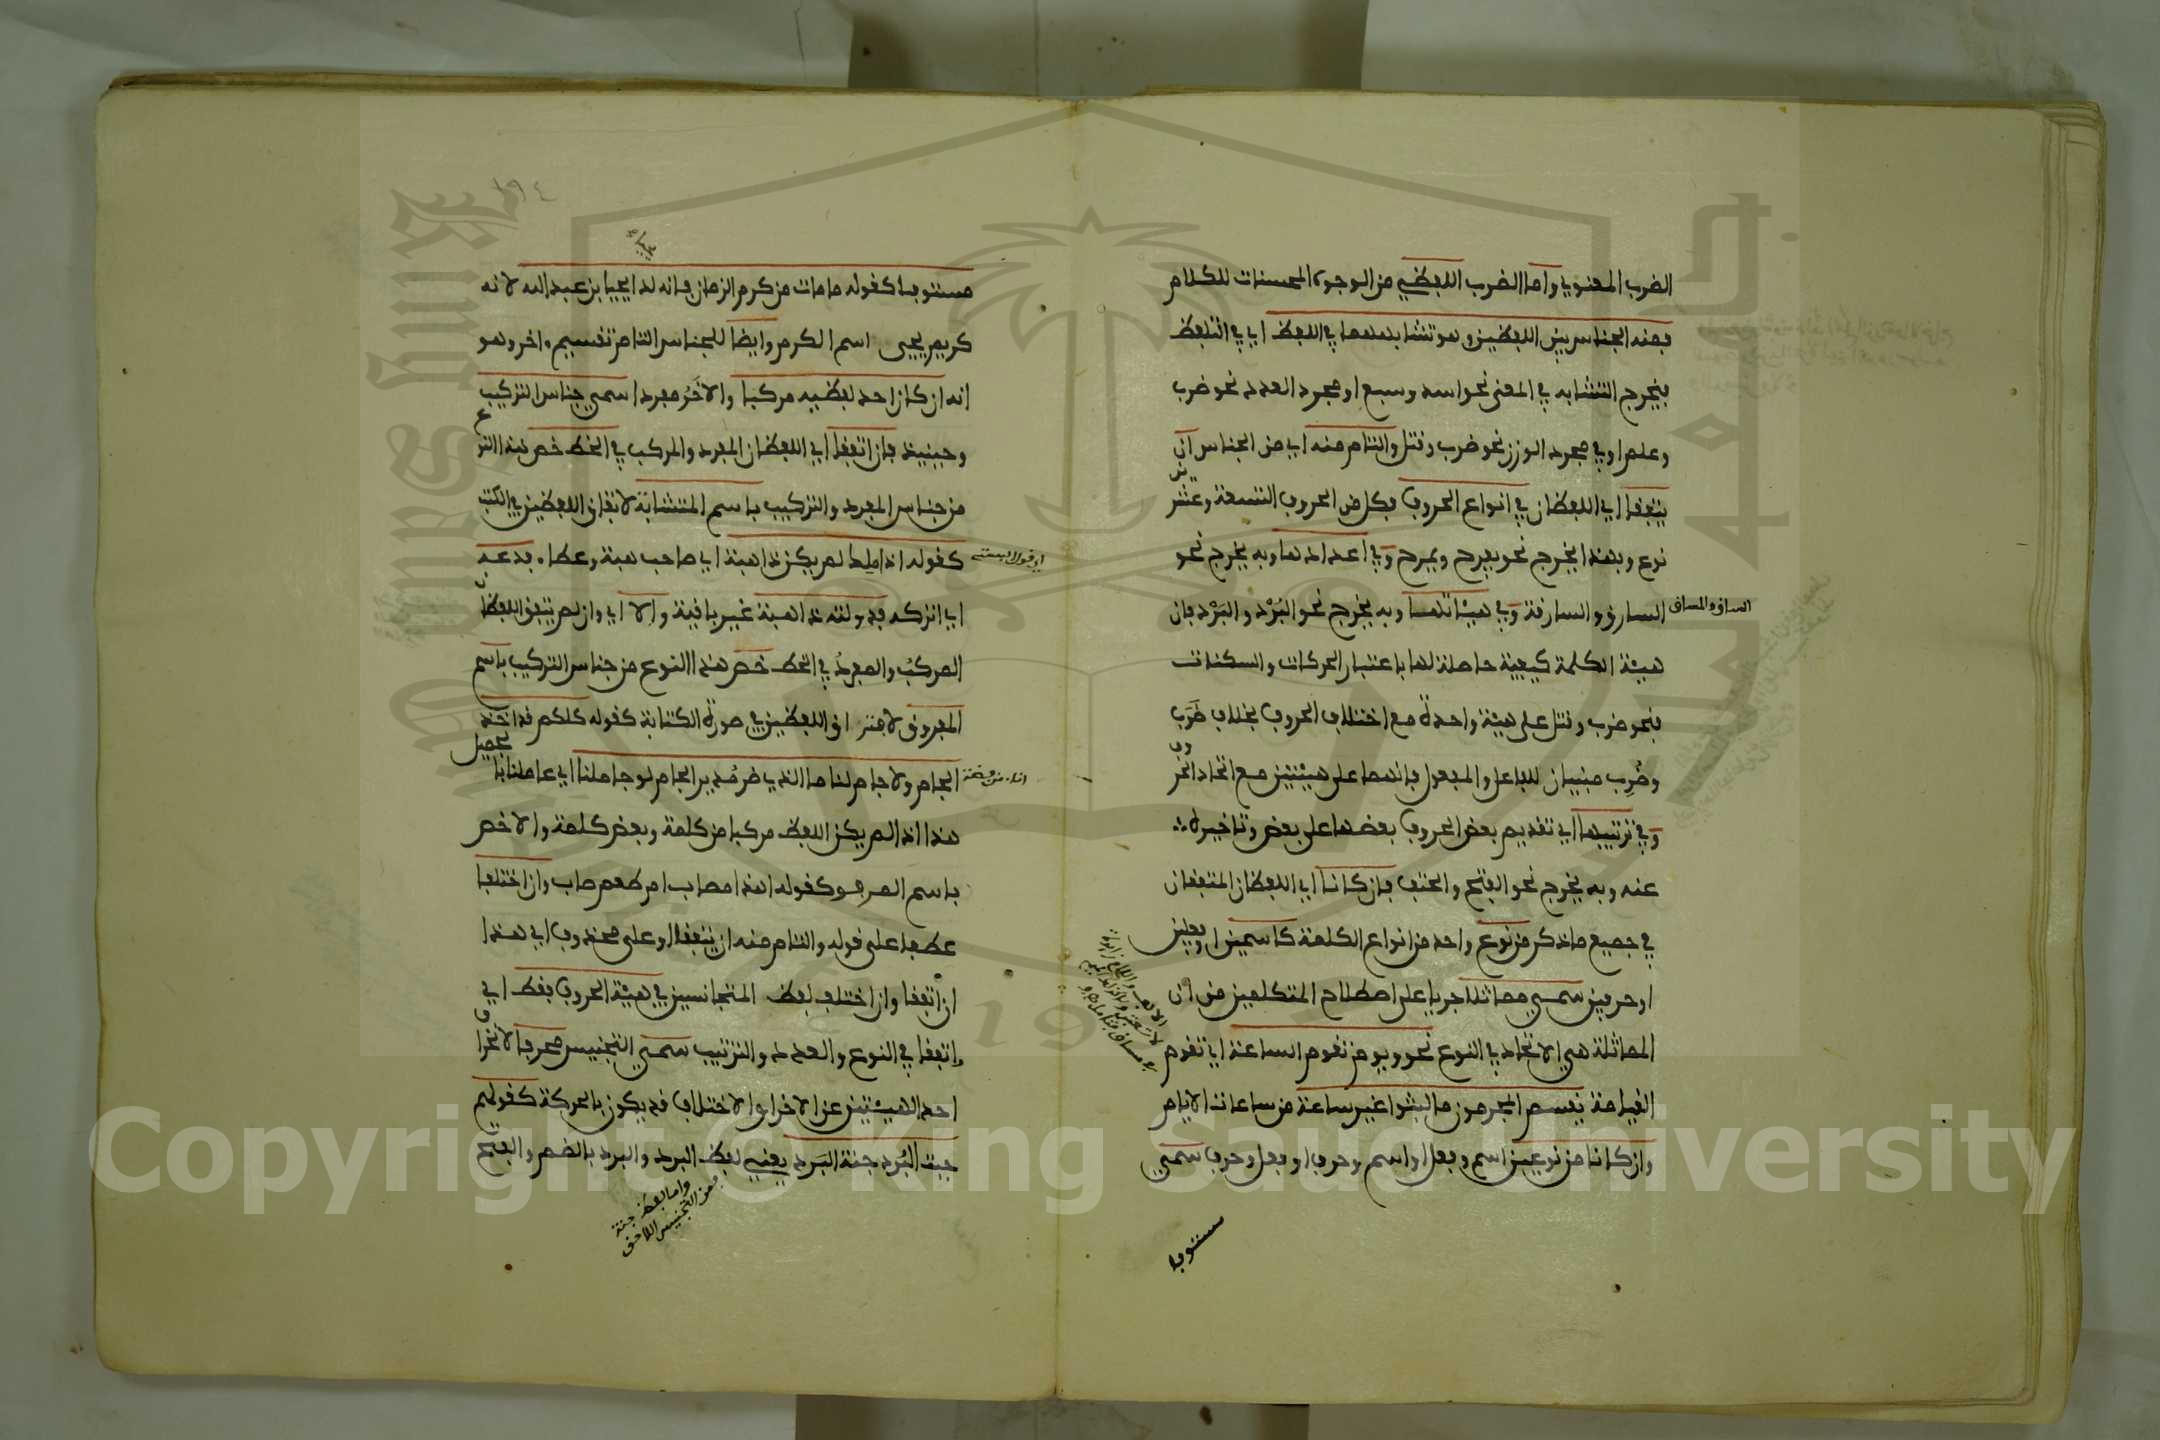 الضرب المعنوي واما الضرب اللفظي من الوجوه المحسنات للكلام
فمنه الجناس بين اللفظين وهو تشابههما في اللفظ اي في التلفظ
فيخرج التشابه في المعنى نحو اسد وسبع او مجرد العدد نحو ضرب
وعلم او في مجرد الوزن نحو ضرب وقتل والتام منه اي من الجناس ان
يتفقا اي اللفظان في انواع الحروف فكل من الحروف التسعة وعشرين
نوع وبهذا يخرج نحو يفرح ويمرح وفي اعدادها وبه يخرج نحو
الساق والمساق
السارق والسارقة وفي هيئاتها وبه يخرج نحو البُرْد والبَرْد فان
هيئة الكلمة كيفية حاصلة لها باعتبار الحركات والسكنات
فنحو ضرب وقتل على هيئة واحدة مع اختلاف الحروف بخلاف ضَرَب
وضُرِب مبنيان للفاعل والمفعول فانهما على هيئتين مع اتحاد الحروف
وفي ترتيبها اي تقديم بعض الحروف بعضها على بعض وتاخيره
عنه وبه يخرج نحو الفتح والحتف فان كانا اي اللفظان المتفقان
في جميع ما ذكر من نوع واحد من انواع الكلمة كاسمين او فعلين
او حرفين سمي مماثلا جريا على اصطلاح المتكلمين من ان
المماثلة هي الاتحاد في النوع نحو ويوم تقوم الساعة اي تقوم
القيامة يقسم المجرمون ما لبثوا غير ساعة من ساعات الايام
وان كانا من نوعين اسم وفعل او اسم وحرف او فعل وحرف سمي
مستوفا
١٩٤
مستوفا كقوله ما مات من كرم الزمان فانه لدا يحيا بن عبد الله لانه
كريم يحيى اسم الكرم وايضا للجناس التام تقسيم اخر وهو
انه ان كان احد لفظيه مركبا والاخَر مفردا سمي جناس التركيب
وحينيذ فان اتفقا اي اللفظان المفرد والمركب في الخط خص هذا النوع
من جناس المفرد والتركيب باسم المتشابة لاتفاق اللفظين في الكتب
كقوله اذا ملك لم يكن ذا هبة اي صاحب هبة وعطا فدعه
اي اتركه فدولته ذاهبة غير باقية والا اي وان لم يتفق اللفظان
المركبُ والمفردُ في الخط خص هذا النوع من جناس التركيب باسم
المفروق لافتراق اللفظين في صورة الكتابة كقوله كلكم قد اخذ
الجام ولا جام لنا ما الذي ضر مُدير الجام لو جاملنا اي عاملنا بالجميل
هذا اذا لم يكن اللفظ مركبا من كلمة وبعض كلمة والا خص
باسم المرفو كقوله اهذا مصاب ام طعم صاب وان اختلفا
عطفا على قوله والتام منه ان يتفقا او على محذوف اي هذا
ان اتفقا وان اختلف لفظ المتجانسين في هيئة الحروف فقط اي
واتفقا في النوع والعدد والترتيب سمي التجنيس محرفا لانحراف
احد الهيئتين عن الاخرى والاختلاف قد يكون بالحركة كقولهم
جبة البُرد جنة البَرد يعني لفظ البرد والبرد بالضم والفتح
واما لفظ جبة
فمن التجنيس اللاحق